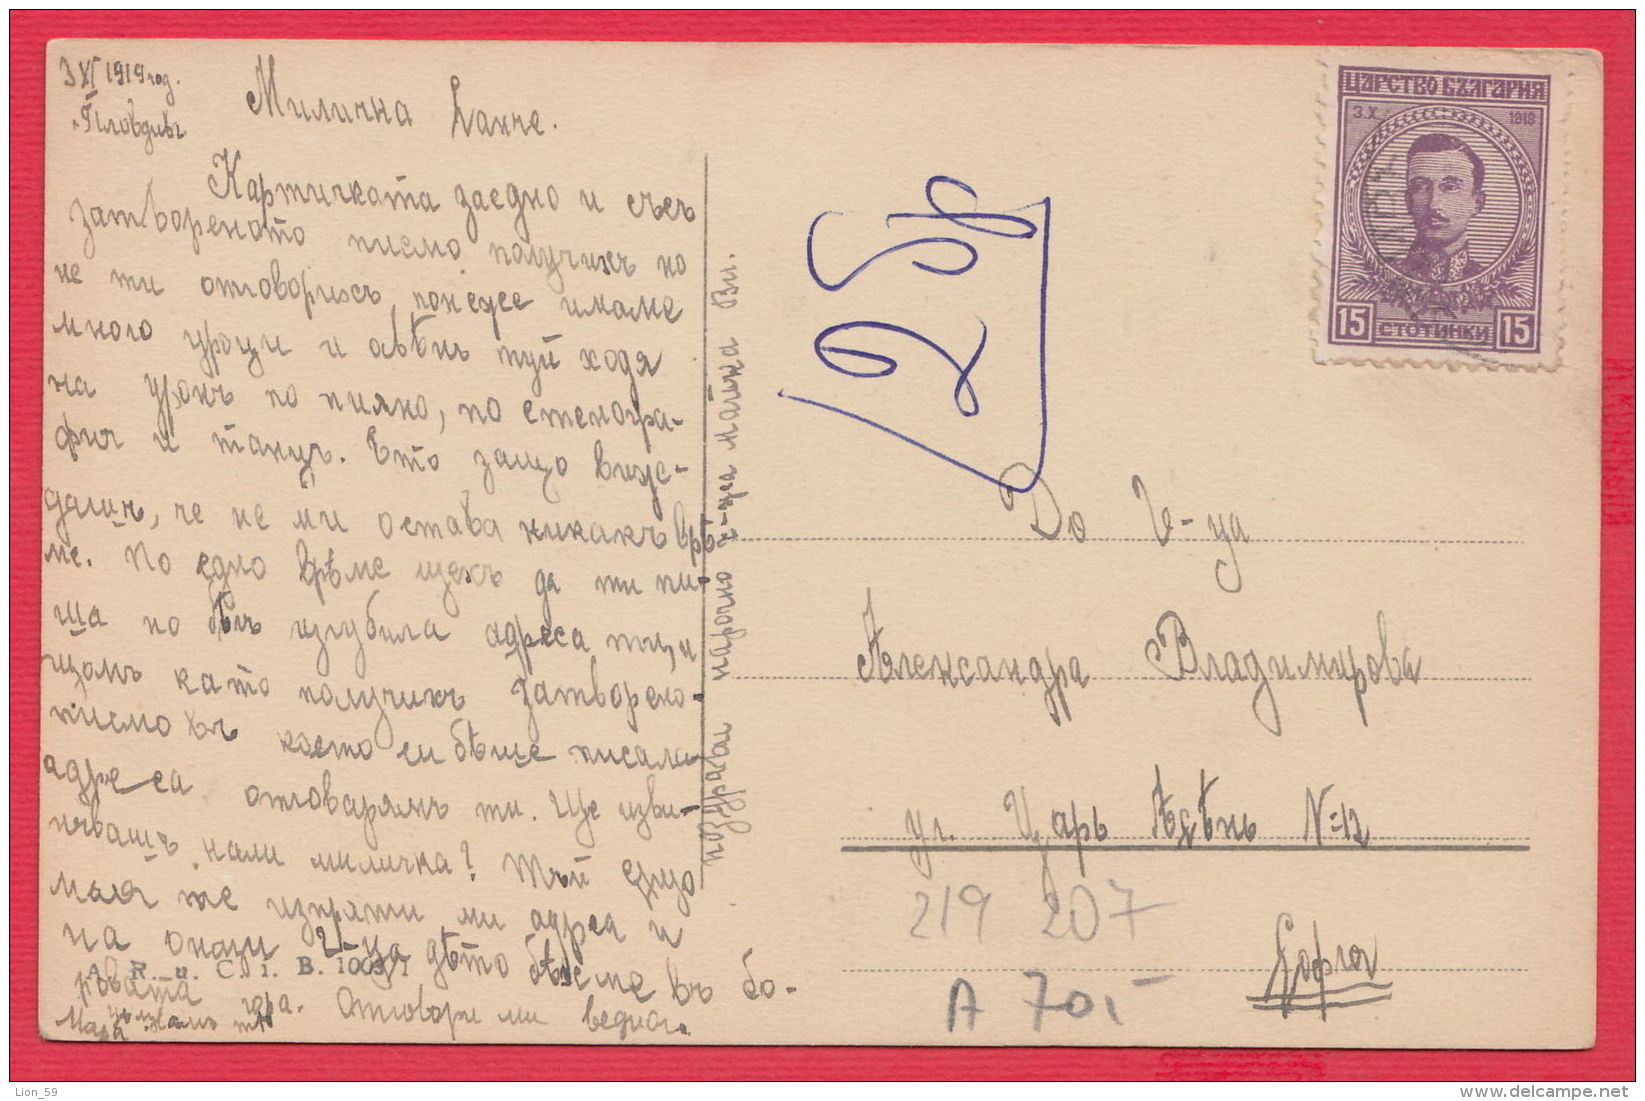 3 XI 1919 год.
Пловдивъ
Миличка Ванче.
Картичката заедно и съсъ
затвореното писмо получихъ но
не ти отговорихъ понеже имаме
много уроци и освѣнь туй ходя
на урокъ по пияно, по стеногра-
фия и танцъ. Ето защо виж-
дашъ, че не ми остава никакъ врѣ-
ме. По едно врѣме щехъ да ти пи-
ша но бѣхъ изгубила адреса ти, и
щомъ като получихъ затворено
писмо въ което си бѣше писала
адреса отговарямъ ти. Ще изви-
нявашъ нали миличка? Тъй също
моля те изпрати ми адреса и
на онази г-ца дѣто бѣхме въ бо-
ровата гора. Отговори ми веднага.
Цѣлувамъ те
Мара
поздрави нарочно г-жа майка Ви.
A. R. u. C. i. B. 1003/1
25р
ЦАРСТВО БЪЛГАРИЯ
3.X. 1918
15 СТОТИНКИ 15
До Г-ца
Александра Владимирова
ул. Царь Асѣнь №12
София
219 207
А 701
Lion_59